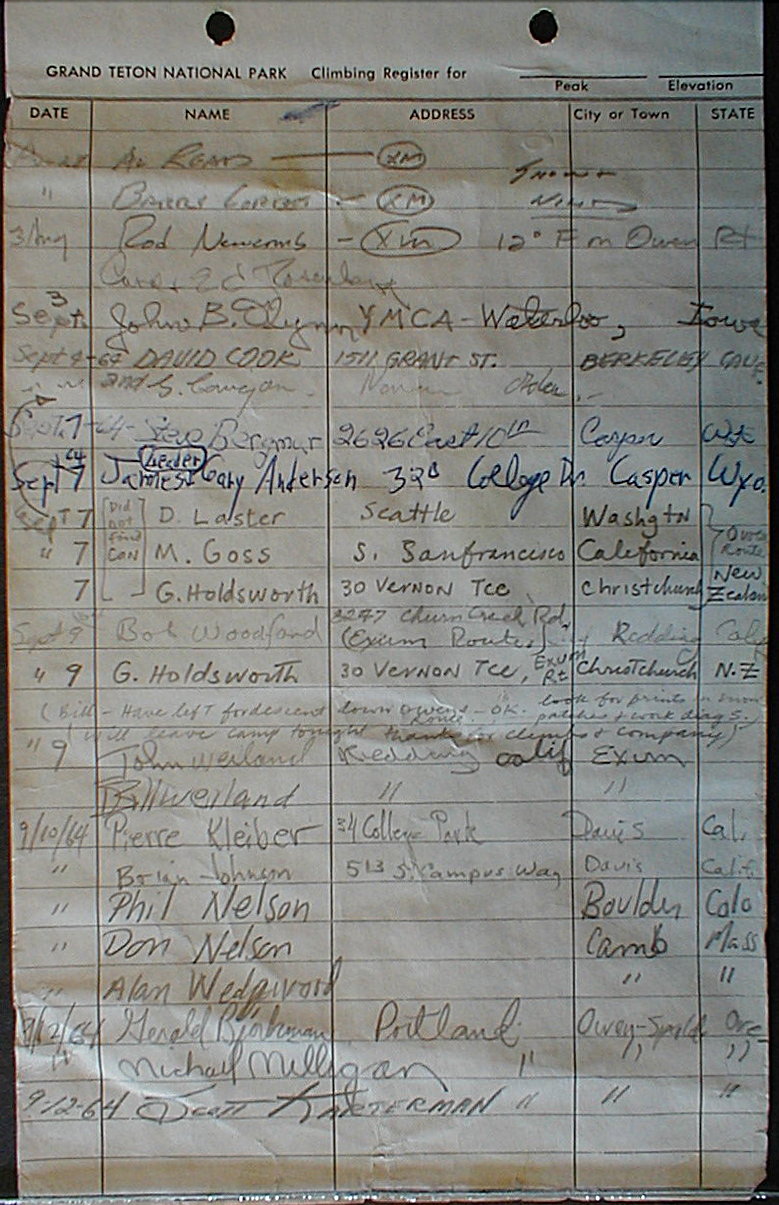 GRAND TETON NATIONAL PARK Climbing Register for
Peak Elevation
DATE NAME ADDRESS City or Town STATE
Al Read XM
" Barry Corbet - XM
3 Aug Rod Newcomb - XM 12° F on Owen Rt
Sept 3 John B. YMCA - Waterloo, Iowa
Sept 4-64 DAVID COOK 1511 GRANT ST. BERKELEY CALIF.
" " and G.
Sept. 7-64- Steve 2626 East 10th Casper Wyo
Sept 7 64 James Gary Anderson 320 College Dr. Casper Wyo.
Leader
Sept 7 [Did not find can] D. Laster Seattle Washgtn
" 7 M. Goss S. Sanfrancisco California Owen Route
7 G. Holdsworth 30 VERNON Tce Christchurch New Zealand
Sept 9 Bob Woodford 3247 Churn Creek Rd. (Exum Route) Redding Calif
" 9 G. Holdsworth 30 VERNON Tce, Exum Rt Christchurch N.Z
(Bill - Have left for descent down Owens Route - OK. look for prints in snow patches & work diag S.
Will leave camp tonight thanks for climbs & company)
" 9 John Weiland Redding calif Exum
Bill Weiland " "
9/10/64 Pierre Kleiber 34 College Park Davis Cal.
" Brian Johnson 513 S. Campus Way Davis Calif.
" Phil Nelson Boulder Colo
" Don Nelson Camb Mass
" Alan Wedgwood " "
9/12/64 Gerald Bjorkman Portland Owen-Spald Ore
" Michael Milligan " " "
9-12-64 Scott KARTERMAN " " "